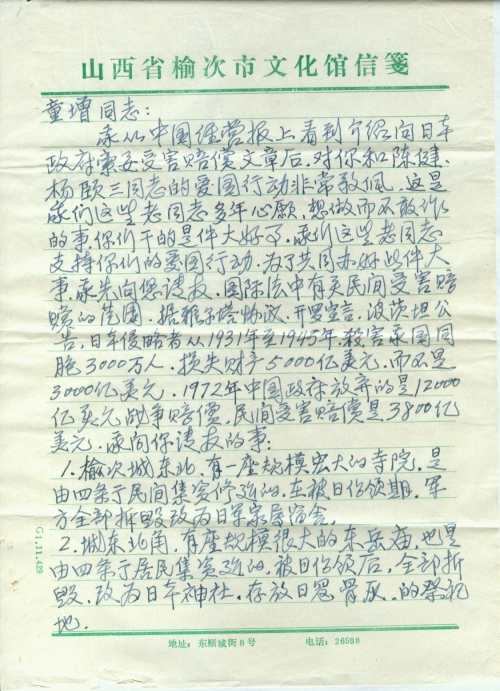 山西省榆次市文化馆信笺
童增同志：
我从中国经营报上看到介绍向日本
政府索要受害赔偿文章后，对你和陈健、
杨颐三同志的爱国行动非常敬佩，这是
我们这些老同志多年心愿，想做而不敢做
的事，你们干的是件大好事，我们这些老同志
支持你们的爱国行动。为了共同办好此件大
事，我先向您请教，国际法中有关民间受害赔
赎的范围，据雅尔塔协议，开罗宣言，波茨坦公
告，日本侵略者从1931年至1945年，杀害我国同
胞3000万人，损失财产5000亿美元，而不是
3000亿美元，1972年中国政府放弃的是12000
亿美元战争赔偿，民间受害赔偿是3800亿
美元，我向你请教的事：
1、榆次城东北，有一座规模宏大的寺院，是
由四条子民间集资修建的，在被日伪领期，军
方全部拆毁改为日军家属宿舍，
2、城东北角，有座规模很大的东岳庙，也是
由四条子居民集资建的，被日伪领后，全部拆
毁，改为日本神社，存放日寇骨灰，的祭祀
地，
地址：东顺城街8号 电话：26598
G1.11.429